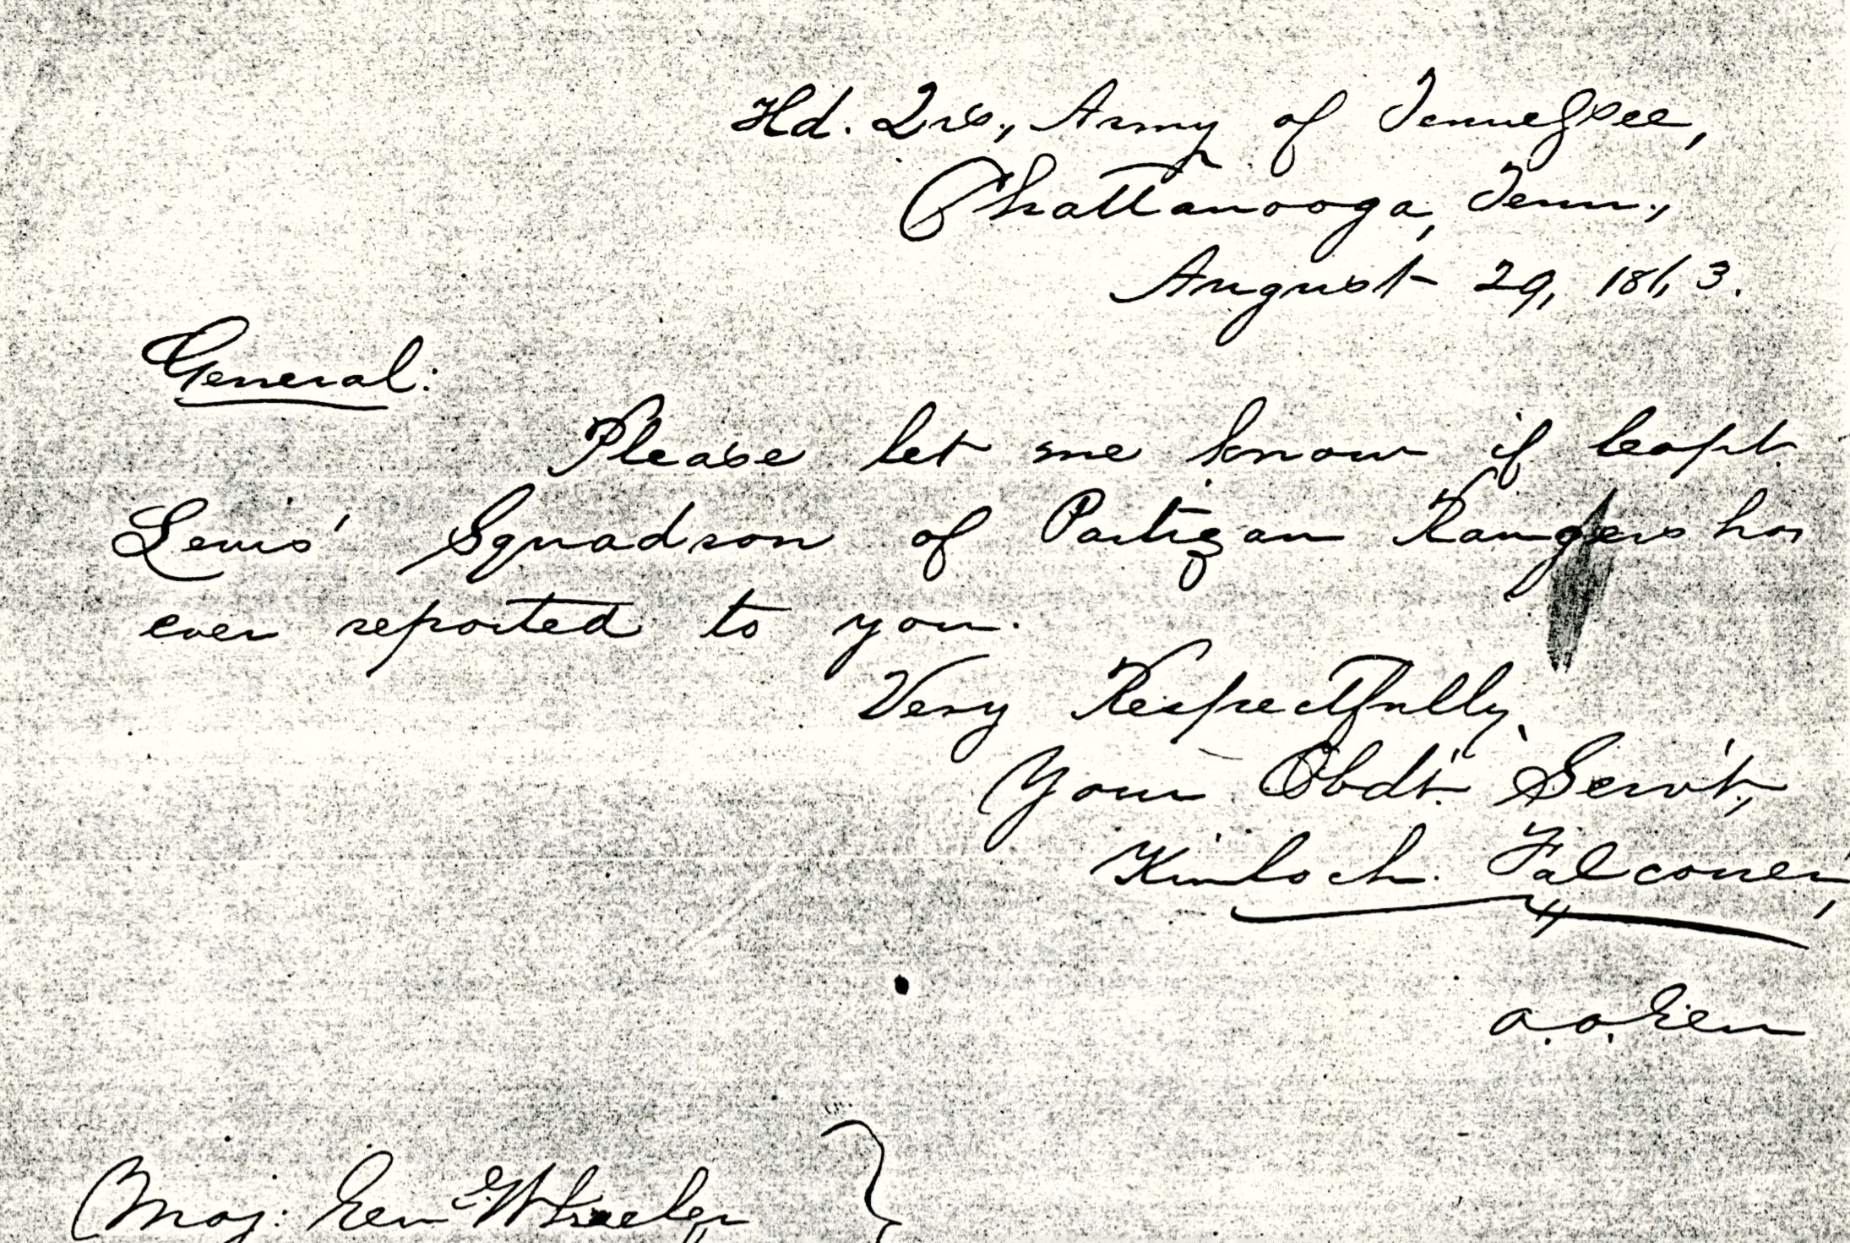 Hd. Qrs., Army of Tennessee,
Chattanooga, Tenn.,
August 29, 1863.
General:
Please let me know if Capt.
Lewis' Squadron of Partizan Rangers has
ever reported to you.
Very Respectfully,
Your Obdt. Servt,
Kinloch Falconer,
A. A. Gen
Maj: Genl Wheeler